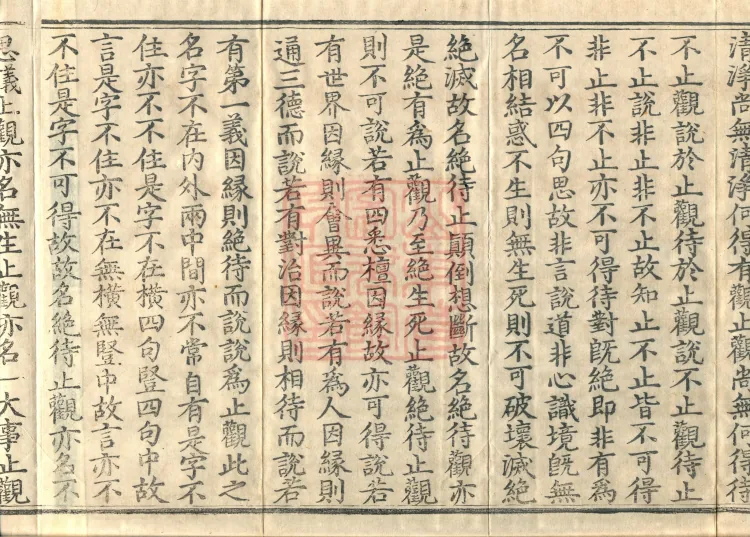 清淨尚無清淨何得有觀止觀尚無何得待
不止觀說於止觀待於止觀說不止觀待止
不止說非止非不止故知止不止皆不可得
非止非不止亦不可得待對旣絕即非有爲
不可以四句思故非言說道非心識境旣無
名相結惑不生則無生死則不可破壞滅絕
絕滅故名絕待止顚倒想斷故名絕待觀亦
是絕有爲止觀乃至絕生死止觀絕待止觀
則不可說若有四悉檀因緣故亦可得說若
有世界因緣則會異而說若有爲人因緣則
通三德而說若有對治因緣則相待而說若
有第一義因緣則絕待而說說爲止觀此之
名字不在內外兩中間亦不常自有是字不
住亦不不住是字不在橫四句豎四句中故
言是字不住亦不在無橫無豎中故言亦不
不住是字不可得故故名絕待止觀亦名不
思議止觀亦名無生止觀亦名一大事止觀